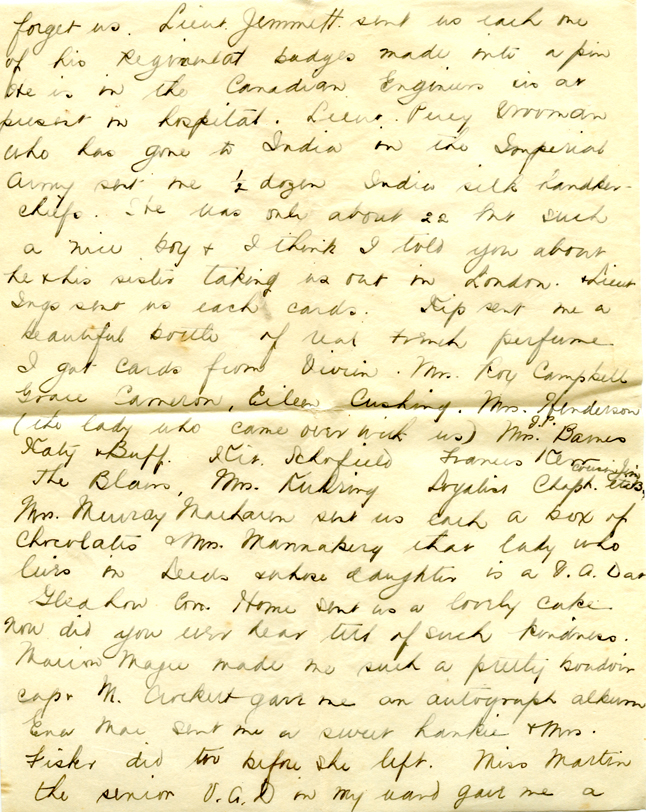 forget us. Lieut Jemmett sent us each one
of his Regimental badges made into a pin
He is in the Canadian Engineers is at
present in hospital. Lieut. Percy Vrooman
who has gone to India in the Imperial
Army sent me ½ dozen India silk handker-
chiefs. He was only about 22 but such
a nice boy & I think I told you about
he & his sister taking us out in London. & Lieut
Ings sent us each cards. Kip sent me a
beautiful bottle of real French perfume
I got cards from Vivien. Mrs. Roy Campbell
Grace Cameron, Eileen Cushing. Mrs. Henderson
(the lady who came over with us) Mrs. J.P. Barnes
Katy & Buff. Kit. Schofield Frances Kerr Cousin
The Blairs, Mrs. Kuhring Loyalist Chapt.
Mrs. Murray MacLaren sent us each a box of
Chocolates & Mrs. that lady who
lives in Leeds whose daughter is a V.A.D at
Gledhow Con. Home sent us a lovely cake
Now did you ever hear tell of such kindness.
Marion Magee made me such a pretty boudoir
cap & M. Crockett gave me an autograph album
Ena Mac sent me a sweet hankie & Mrs.
Fisher did too before she left. Miss Martin
the senior V.A.D in my ward gave me a